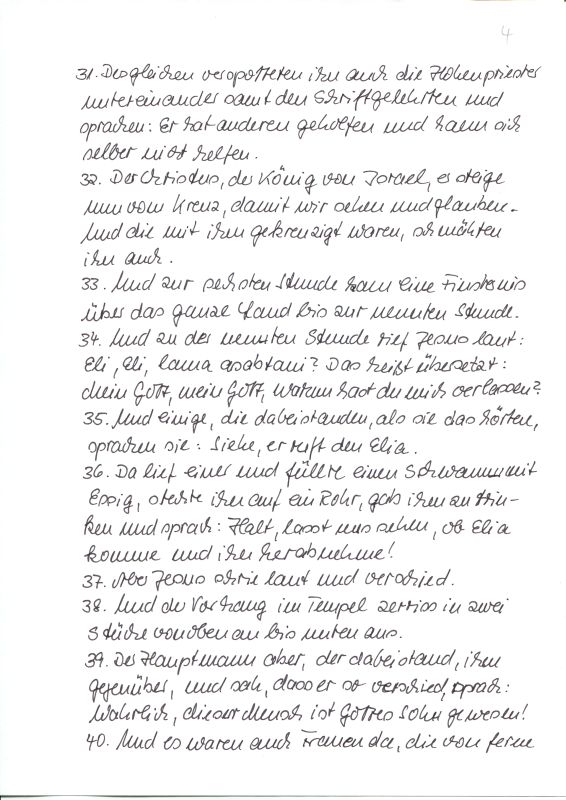 4
31. Desgleichen verspotteten ihn auch die Hohenpriester
untereinander samt den Schriftgelehrten und
sprachen: Er hat anderen geholfen und kann sich
selber nicht helfen.
32. Der Christus, der König von Israel, er steige
nun vom Kreuz, damit wir sehen und glauben.
Und die mit ihm gekreuzigt waren, schmähten
ihn auch.
33. Und zur sechsten Stunde kam eine Finsternis
über das ganze Land bis zur neunten Stunde.
34. Und zu der neunten Stunde rief Jesus laut:
Eli, Eli, lama asabtani? Das heißt übersetzt:
Mein Gott, mein Gott, warum hast du mich verlassen?
35. Und einige, die dabeistanden, als sie das hörten,
sprachen sie: Siehe, er ruft den Elia.
36. Da lief einer und füllte einen Schwamm mit
Essig, steckte ihn auf ein Rohr, gab ihm zu trin-
ken und sprach: Halt, lasst uns sehen, ob Elia
komme und ihn herabnehme!
37. Aber Jesus schrie laut und verschied.
38. Und der Vorhang im Tempel zerriss in zwei
Stücke von oben an bis unten aus.
39. Der Hauptmann aber, der dabeistand, ihm
gegenüber, und sah, dass er so verschied, sprach:
Wahrlich, dieser Mensch ist Gottes Sohn gewesen!
40. Und es waren auch Frauen da, die von ferne